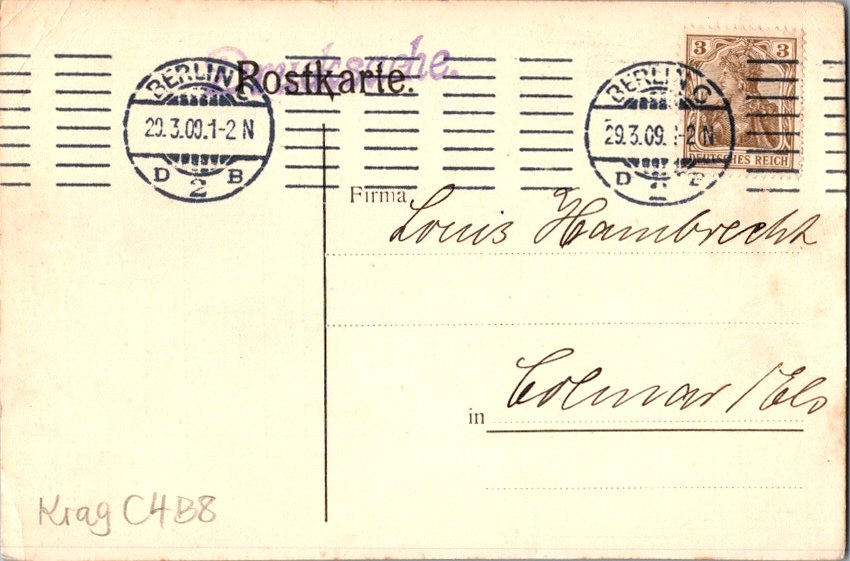 Drucksache.
Postkarte.
BERLIN C
29.3.09.1-2 N
D 2 B
BERLIN C
29.3.09.1-2 N
D 2 B
3 3
DEUTSCHES REICH
Firma
Louis Hambrecht
in Colmar /Els
Krag C4B8